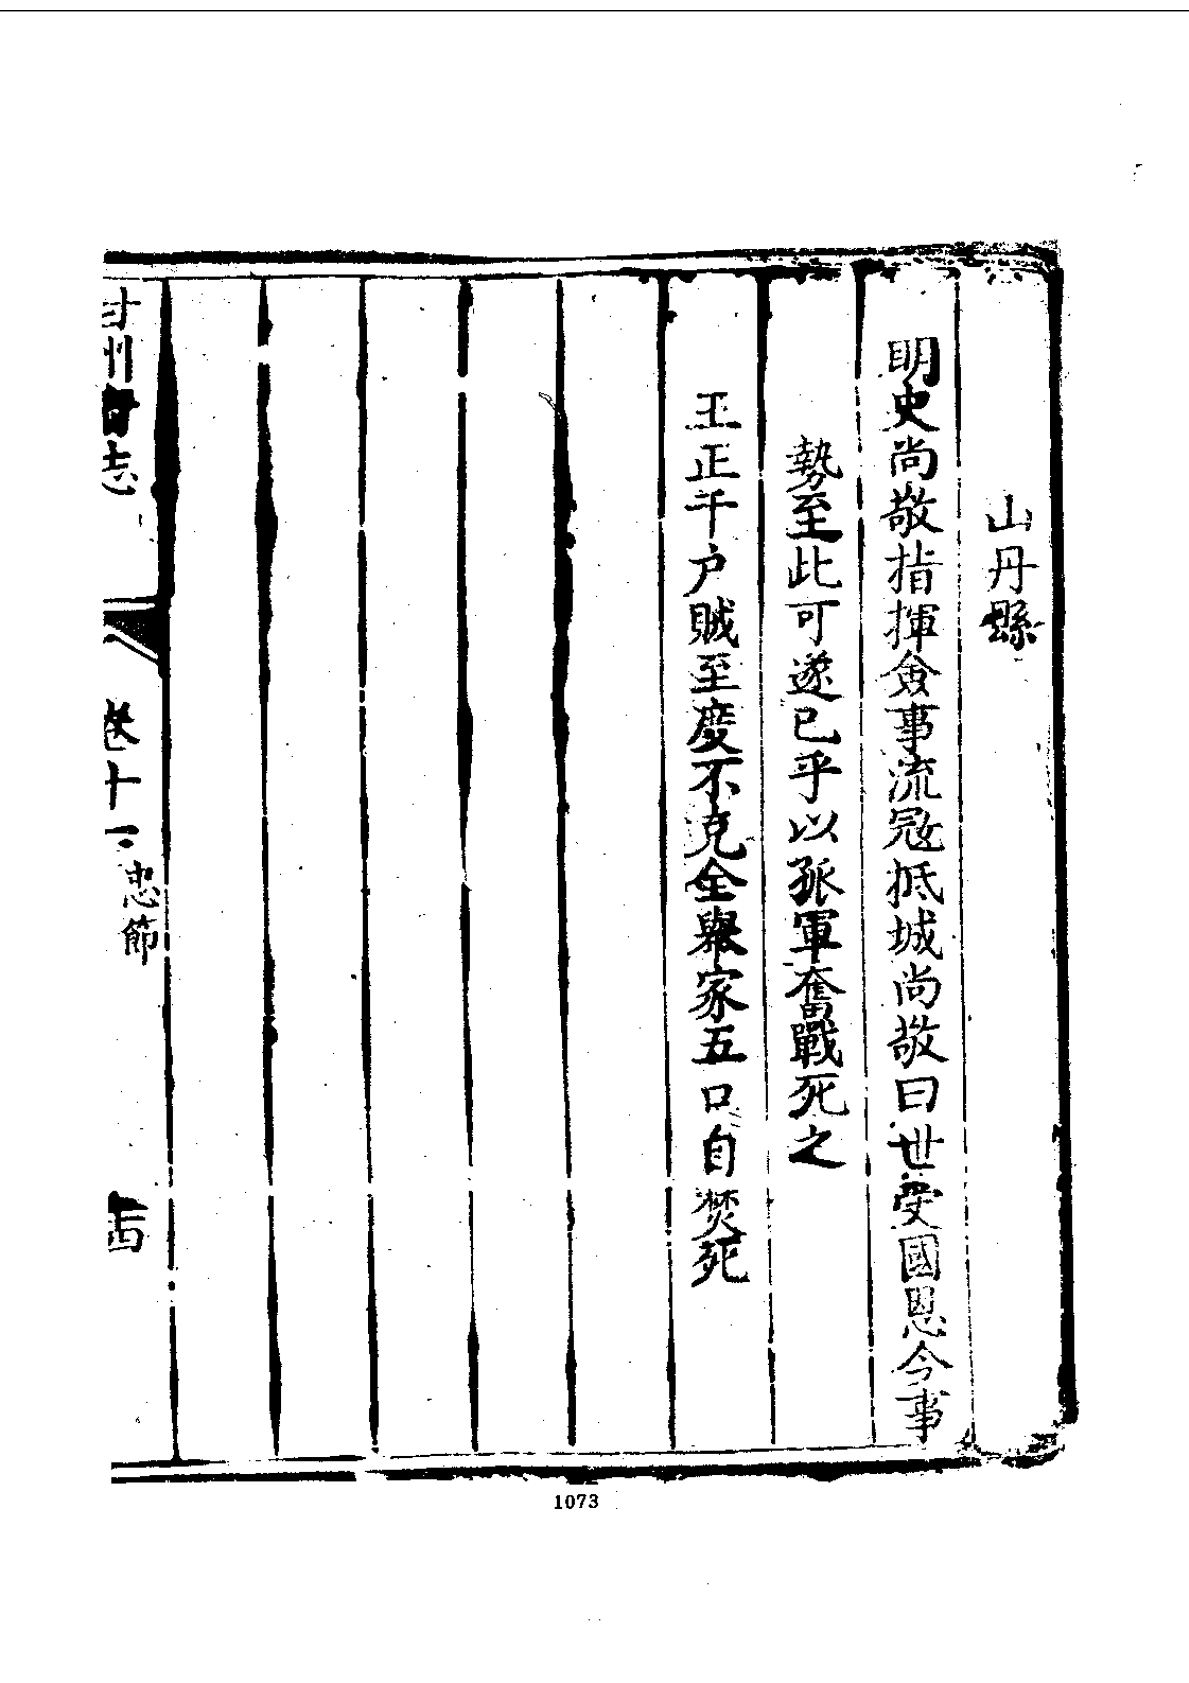 山丹縣
明史尚敬指揮僉事流冦抵城尚敬曰世受國恩今事
勢至此可遂已乎以孤軍奮戰死之
王正千户賊至度不克全舉家五口自焚死
甘州府志
卷十一
忠節
苖
1073